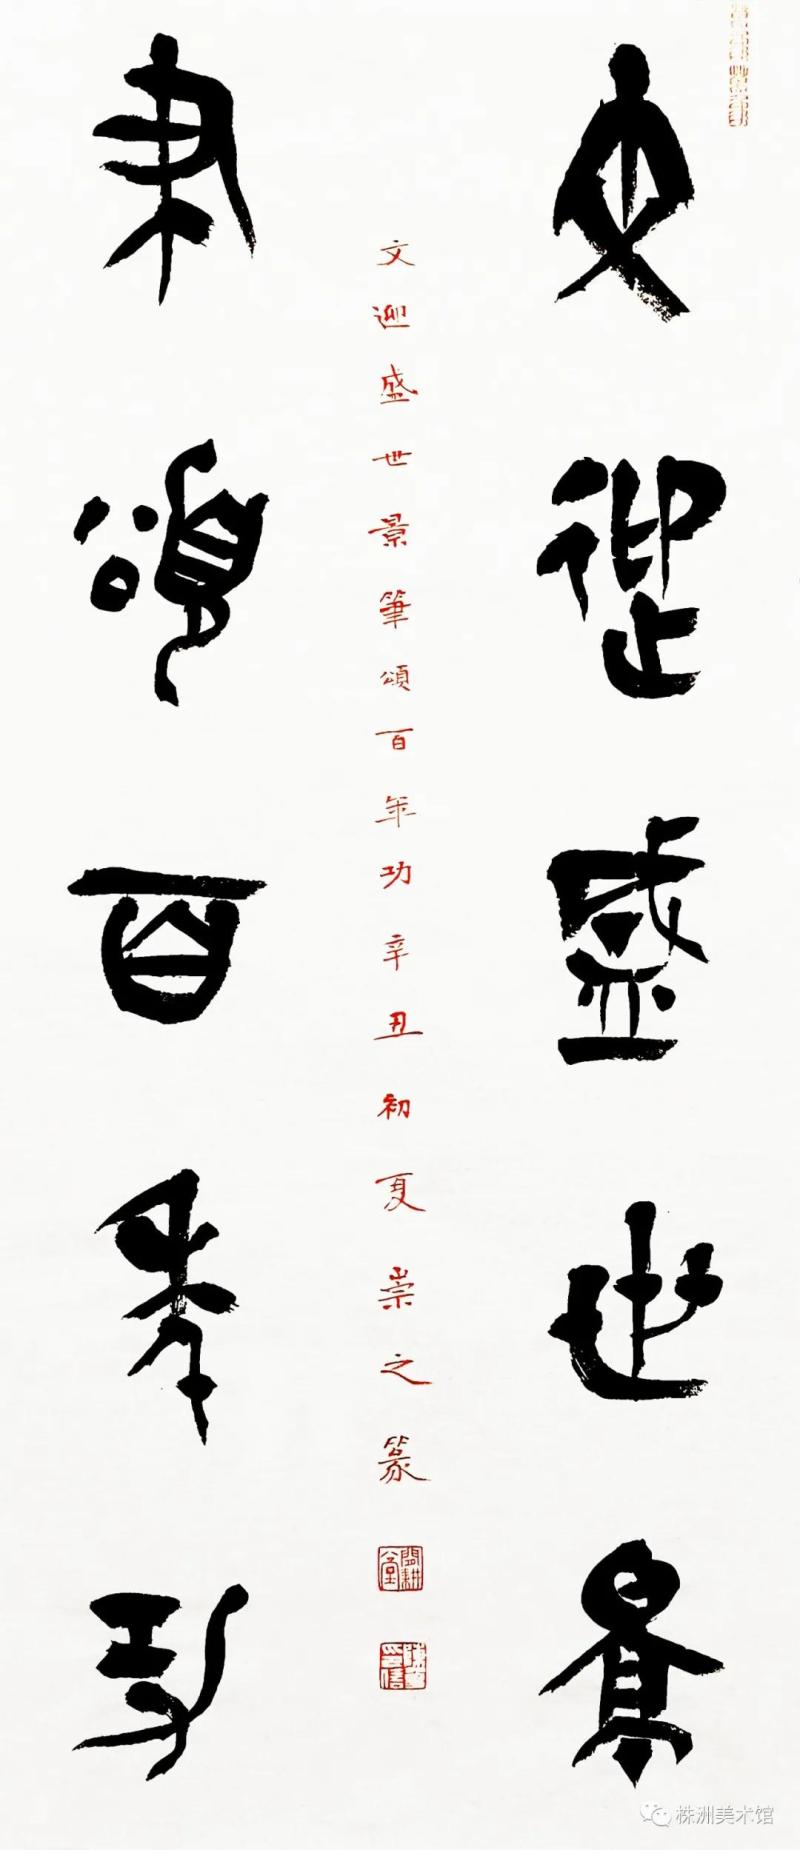 文迎盛世景
筆頌百年功
文迎盛世景筆頌百年功辛丑初夏崇之篆
株洲美术馆